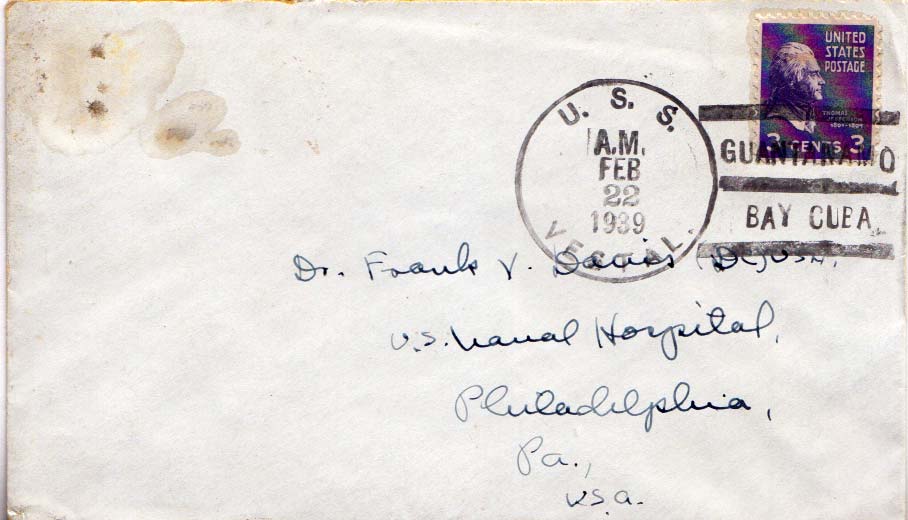 UNITED
STATES
POSTAGE
THOMAS
JEFFERSON
1801-1809
3 CENTS 3
U. S. S.
A.M.
FEB
22
1939
VESTAL.
GUANTANAMO
BAY CUBA.
Dr. Frank V. Davis (DC) USN.
U.S. Naval Hospital,
Philadelphia,
Pa.,
U.S.A.